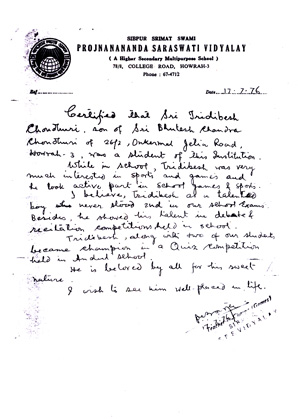 SIBPUR SRIMAT SWAMI
PROJNANANANDA SARASWATI VIDYALAY
( A Higher Secondary Multipurpose School )
78/6, COLLEGE ROAD, HOWRAH-3
Phone : 67-4712
Ref
Date 17-7-76
Certified that Sri Tridibesh
Choudhuri, son of Sri Bhutesh Chandra
Choudhuri of 26/2, Jelia Road,
Howrah-3, was a student of this Institution.
While in school, Tridibesh was very
much interested in sports and games and
he took active part in School games & sports.
I believe, Tridibesh as a talented
boy who never stood 2nd in our school exams.
Besides, he showed his talent in debate &
recitation competitions held in school.
Tridibesh, along with two of our students
became champion in a Quiz competition
held in Andul school.
He is beloved by all for his sweet
nature.
I wish to see him well-placed in life.